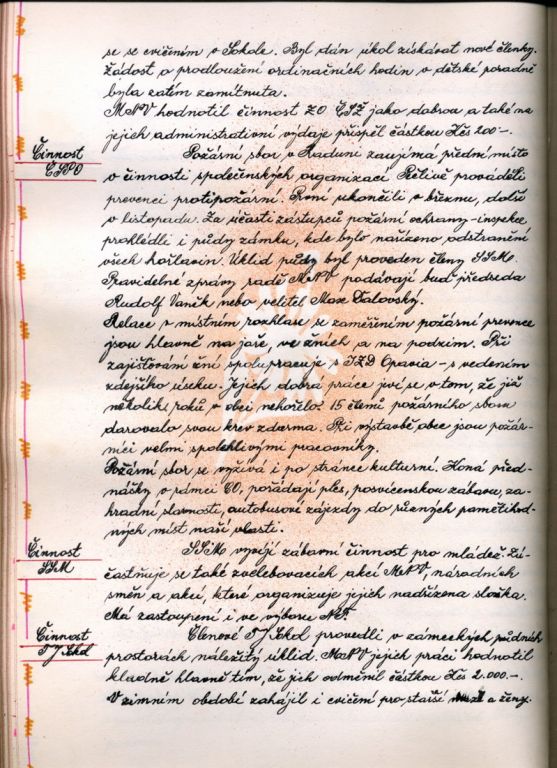 se se cvičením v Sokole. Byl dán úkol získávat nové členky.
Žádost o prodloužení ordinačních hodin v dětské poradně
byla zatím zamítnuta.
MNV hodnotil činnost ZO ČSŽ jako dobrou a také na
jejich administrativní výdaje přispěl částkou Kčs 200-.
Činnost
ČSPO
Požární sbor v Raduni zaujímá přední místo
v činnosti společenských organizací. Pečlivě prováděli
prevenci protipožární. První ukončili v březnu, další
v listopadu. Za účasti zástupců požární ochrany-inspekce
prohlédli i půdy zámku, kde bylo nařízeno odstranění
všech hořlavin. Úklid půdy byl proveden členy SSM.
Pravidelné zprávy radě MNV podávají buď předseda
Rudolf Vaněk nebo velitel Max Halovský.
Relace v místním rozhlase se zaměřením požární prevence
jsou hlavně na jaře, ve žních a na podzim. Při
zajišťování žní spolupracuje s JZD Opavia - s vedením
zdejšího úseku. Jejich dobrá práce jeví se v tom, že již
několik roků v obci nehořelo. 15 členů požárního sboru
darovalo svou krev zdarma. Při výstavbě obce jsou požár-
níci velmi spolehlivými pracovníky.
Požární sbor se vyžívá i po stránce kulturní. Koná před-
nášky v rámci CO, pořádají ples, posvícenskou zábavu, za-
hradní slavnosti, autobusové zájezdy do různých pamětihod-
ných míst naší vlasti.
Činnost
SSM
SSM vyvíjí zábavní činnost pro mládež. Zú-
častňuje se také zvelebovacích akcí MNV, národních
směn a akcí, které organizuje jejich nadřízená složka.
Má zastoupení i ve výboru NF.
Činnost
TJ Sokol
Členové TJ Sokol provedli v zámeckých půdních
prostorách náležitý úklid. MNV jejich práci hodnotil
kladně hlavně tím, že jich odměnil částkou Kčs 2.000-.
V zimním období zahájil i cvičení pro starší muže a ženy.